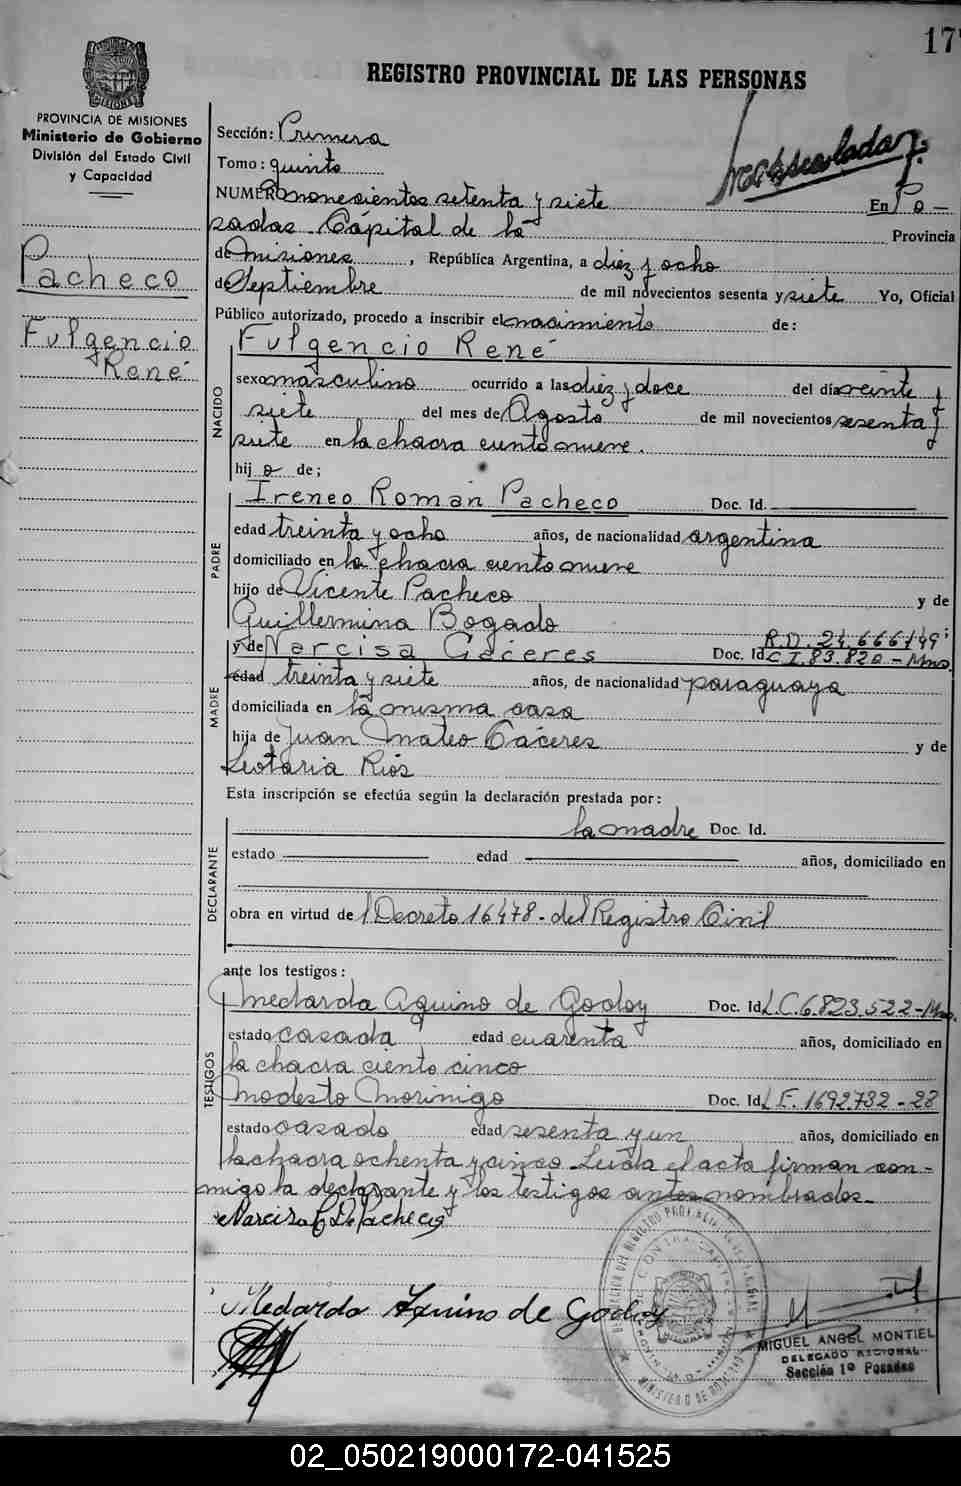 17
REGISTRO PROVINCIAL DE LAS PERSONAS
MISIONES
PROVINCIA DE MISIONES
Ministerio de Gobierno
División del Estado Civil
y Capacidad
Pacheco
Fulgencio
René
Sección: Primera
Tomo: quinto
NUMERO novecientos setenta y siete En Po-
sadas Capital de la Provincia
de Misiones, República Argentina, a diez y ocho
de Septiembre de mil novecientos sesenta y siete Yo, Oficial
Público autorizado, procedo a inscribir el nacimiento de:
NACIDO
Fulgencio René
sexo masculino ocurrido a las diez y doce del día veinte y
siete del mes de Agosto de mil novecientos sesenta y
siete en la chacra ciento nueve.
hijo de;
PADRE
Ireneo Román Pacheco Doc. Id.
edad treinta y ocho años, de nacionalidad argentina
domiciliado en la chacra ciento nueve
hijo de Vicente Pacheco y de
Guillermina Bogado
R.D. 24.666149
MADRE
y de Narcisa Cáceres Doc. Id. C I. 83.820 - Mns.
edad treinta y siete años, de nacionalidad paraguaya
domiciliada en la misma casa
hija de Juan Mateo Cáceres y de
Leotaria Ríos
Esta inscripción se efectúa según la declaración prestada por:
DECLARANTE
la madre Doc. Id.
estado edad años, domiciliado en
obra en virtud de l Decreto 16478 - del Registro Civil
ante los testigos:
TESTIGOS
Medarda Aquino de Godoy Doc. Id. L.C. 6.823.522 - Mns.
estado casada edad cuarenta años, domiciliado en
la chacra ciento cinco
Modesto Morinigo Doc. Id. L E. 1692.732 - 23
estado casado edad sesenta y un años, domiciliado en
la chacra ochenta y cinco. Leída el acta firman con-
migo la declarante y los testigos antes nombrados.
Narcisa C de Pacheco
Medarda Aquino de Godoy
MIGUEL ANGEL MONTIEL
DELEGADO REGIONAL
Sección 1º Posadas
02_050219000172-041525